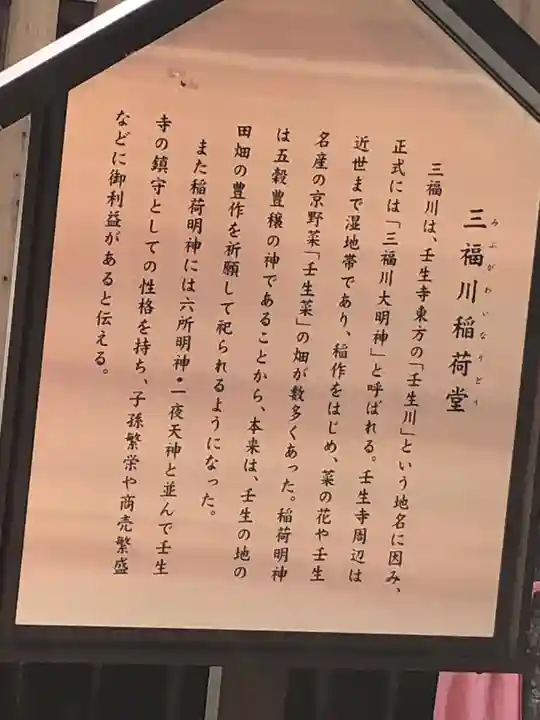 三福川稲荷堂
みぶがわいなりどう
三福川は、壬生寺東方の「壬生川」という地名に因み、
正式には「三福川大明神」と呼ばれる。壬生寺周辺は
近世まで湿地帯であり、稲作をはじめ、菜の花や壬生
名産の京野菜「壬生菜」の畑が数多くあった。稲荷明神
は五穀豊穣の神であることから、本来は、壬生の地の
田畑の豊作を祈願して祀られるようになった。
また稲荷明神には六所明神・一夜天神と並んで壬生
寺の鎮守としての性格を持ち、子孫繁栄や商売繁盛
などに御利益があると伝える。